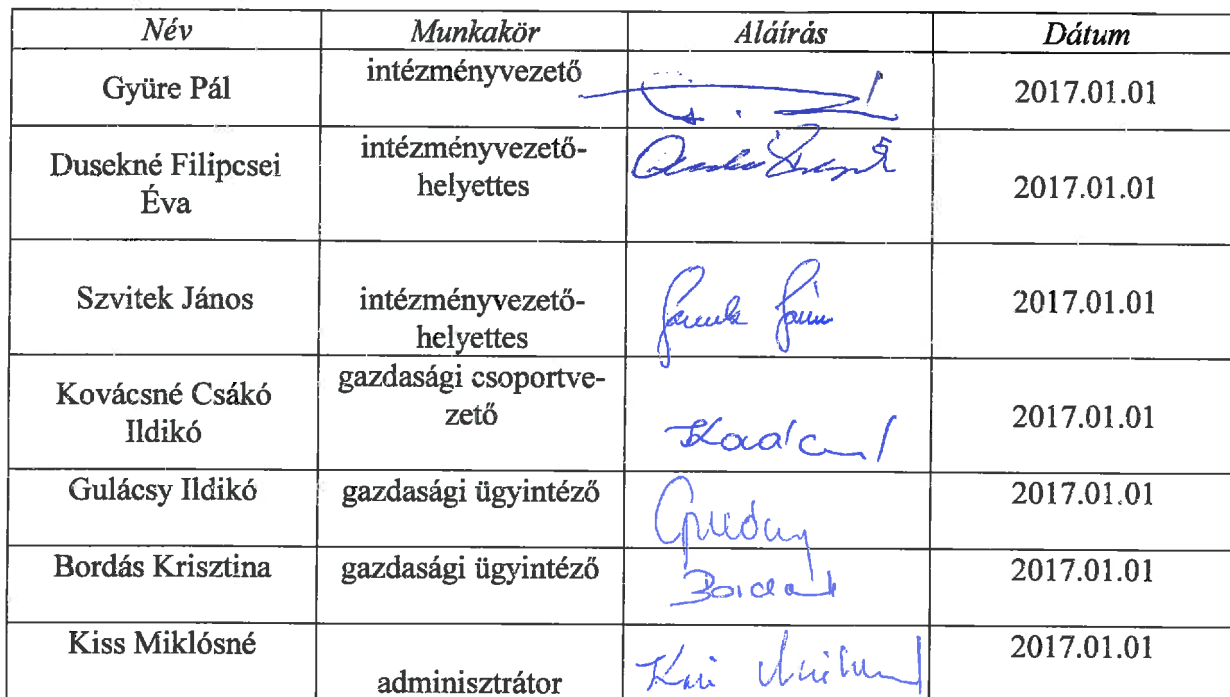 Név Munkakör Aláírás Dátum
Gyüre Pál intézményvezető 2017.01.01
Dusekné Filipcsei intézményvezető-
Éva helyettes 2017.01.01
Szvitek János intézményvezető- 2017.01.01
helyettes
Kovácsné Csákó gazdasági csoportve-
Ildikó zető 2017.01.01
Gulácsy Ildikó gazdasági ügyintéző 2017.01.01
Bordás Krisztina gazdasági ügyintéző 2017.01.01
Kiss Miklósné adminisztrátor 2017.01.01